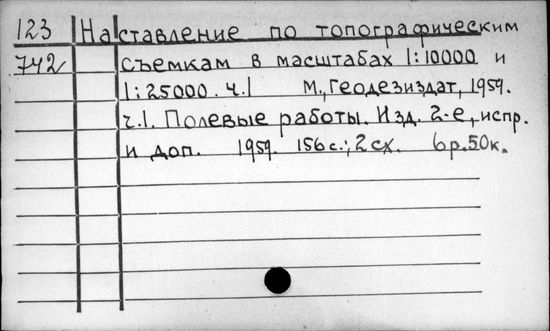 123 Наставление по топографическим
742 съемкам в масштабах 1:10000 и
1:25000. ч.1 М., Геодезиздат, 1959.
ч.1. Полевые работы. Изд. 2-е, испр.
и доп. 1959. 156с.; 2сх. 6р.50к.